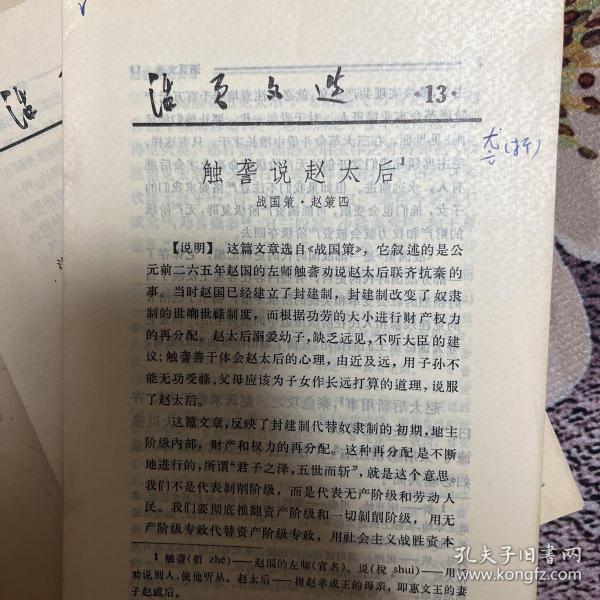 活页文选
·13·
触詟说赵太后¹
战国策·赵策四
【说明】 这篇文章选自《战国策》，它叙述的是公
元前二六五年赵国的左师触詟劝说赵太后联齐抗秦的
事。当时赵国已经建立了封建制，封建制改变了奴隶
制的世卿世禄制度，而根据功劳的大小进行财产权力
的再分配。赵太后溺爱幼子，缺乏远见，不听大臣的建
议；触詟善于体会赵太后的心理，由近及远，用子孙不
能无功受禄、父母应该为子女作长远打算的道理，说服
了赵太后。
这篇文章，反映了封建制代替奴隶制的初期，地主
阶级内部，财产和权力的再分配。这种再分配是不断
地进行的，所谓“君子之泽，五世而斩”，就是这个意思。
我们不是代表剥削阶级，而是代表无产阶级和劳动人
民。我们要彻底推翻资产阶级和一切剥削阶级，用无
产阶级专政代替资产阶级专政，用社会主义战胜资本
1 触詟（哲 zhé）——赵国的左师（官名）。说（税 shuì）——用
劝说别人，使他听从。赵太后——指赵孝成王的母亲，即惠文王的妻
子赵威后。
孔夫子旧书网
www.kongfz.com